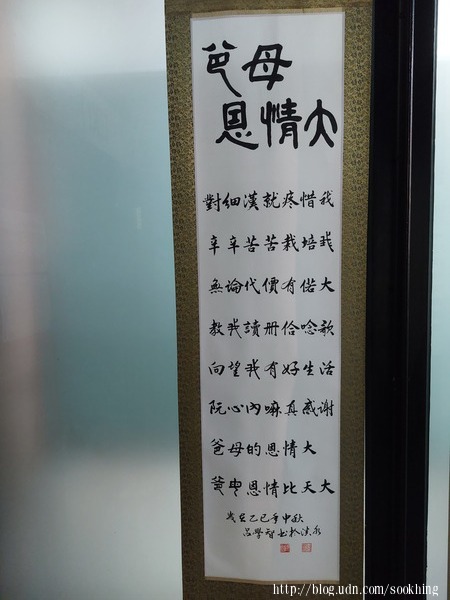 爸母
恩情大
對細漢就疼惜我
辛辛苦苦栽培我
無論代價有偌大
教我讀冊佮唸歌
向望我有好生活
阮心內嘛真感謝
爸母的恩情大
爸母恩情比天大
歲在乙巳年中秋
呂學智書於淡水
http://blog.udn.com/sookhing